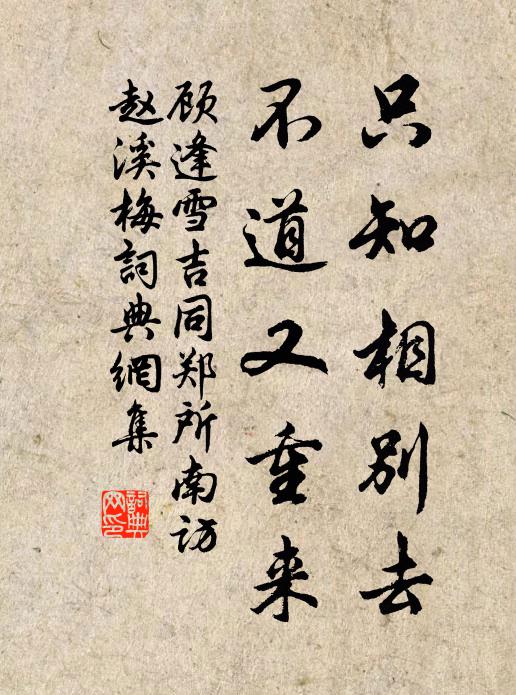 只知相别去
不道又重来
顾逢雪吉同郑所南访
赵溪梅詞典網集
詞典网印